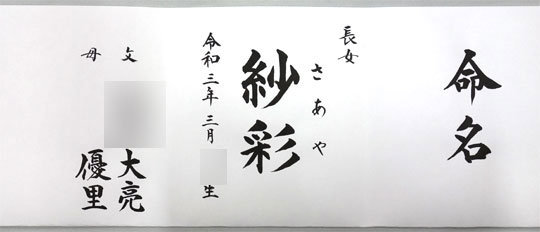 命名
長女
さあや
紗彩
令和三年三月 生
父 大亮
母 優里